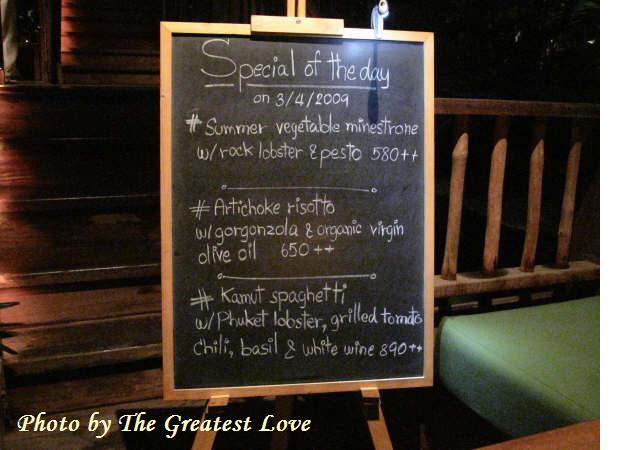 Special of the day
on 3/4/2009
# Summer vegetable minestrone
w/rock lobster & pesto 580++
# Artichoke risotto
w/gorgonzola & organic virgin
olive oil 650++
# Kamut spaghetti
w/Phuket lobster, grilled tomato
Chili, basil & white wine 890++
Photo by The Greatest Love